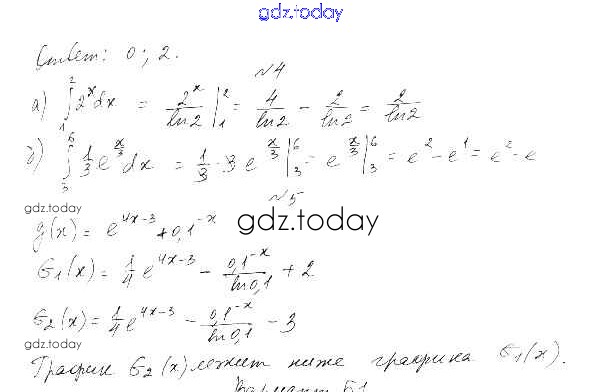 gdz.today
Ответ: 0; 2.
№4
а) ∫₁² 2ˣ dx = 2ˣ/ln2 |₁² = 4/ln2 − 2/ln2 = 2/ln2
б) ∫₃⁶ 1/3 e^(x/3) dx = 1/3 · 3 e^(x/3) |₃⁶ = e^(x/3) |₃⁶ = e² − e¹ = e² − e
№5
gdz.today
gdz.today
g(x) = e^(4x−3) + 0,1^(−x)
G₁(x) = 1/4 e^(4x−3) − 0,1^(−x)/ln0,1 + 2
G₂(x) = 1/4 e^(4x−3) − 0,1^(−x)/ln0,1 − 3
gdz.today
График G₂(x) лежит ниже графика G₁(x).
Вариант Б1